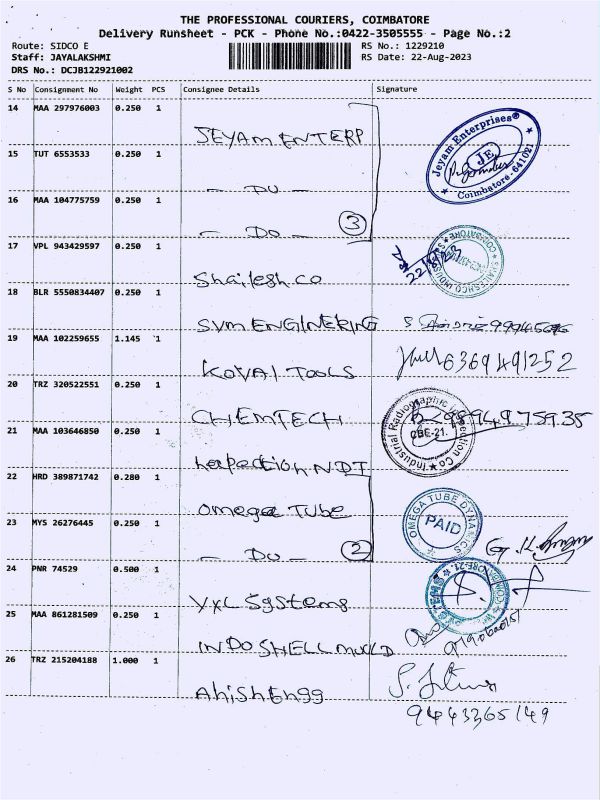 THE PROFESSIONAL COURIERS, COIMBATORE
Delivery Runsheet - PCK - Phone No.:0422-3505555 - Page No.:2
Route: SIDCO E RS No.: 1229210
Staff: JAYALAKSHMI RS Date: 22-Aug-2023
DRS No.: DCJB122921002
S No Consignment No Weight PCS Consignee Details Signature
14 MAA 297976003 0.250 1
JEYAM ENTERP
Jeyam Enterprises®
JE
Coimbatore-641021
15 TUT 6553533 0.250 1
- DO -
16 MAA 104775759 0.250 1
- DO - 3
17 VPL 943429597 0.250 1
Shailesh co
22/8/23
18 BLR 5550834407 0.250 1
SVM ENGINERING
19 MAA 102259655 1.145 1
KOVAI TOOLS 6369491252
20 TRZ 320522551 0.250 1
CHEMTECH
21 MAA 103646850 0.250 1
Industrial Radiographic Inspection Co
CBE-21.
Inspection NDT
22 HRD 389871742 0.280 1
Omega TUBE
OMEGA TUBE DYNAMICS
PAID
23 MYS 26276445 0.250 1
- DO - 2
24 PNR 74529 0.500 1
YXL Systems
25 MAA 861281509 0.250 1
INDO SHELL MOULD
26 TRZ 215204188 1.000 1
Ahish Engg
9443365149